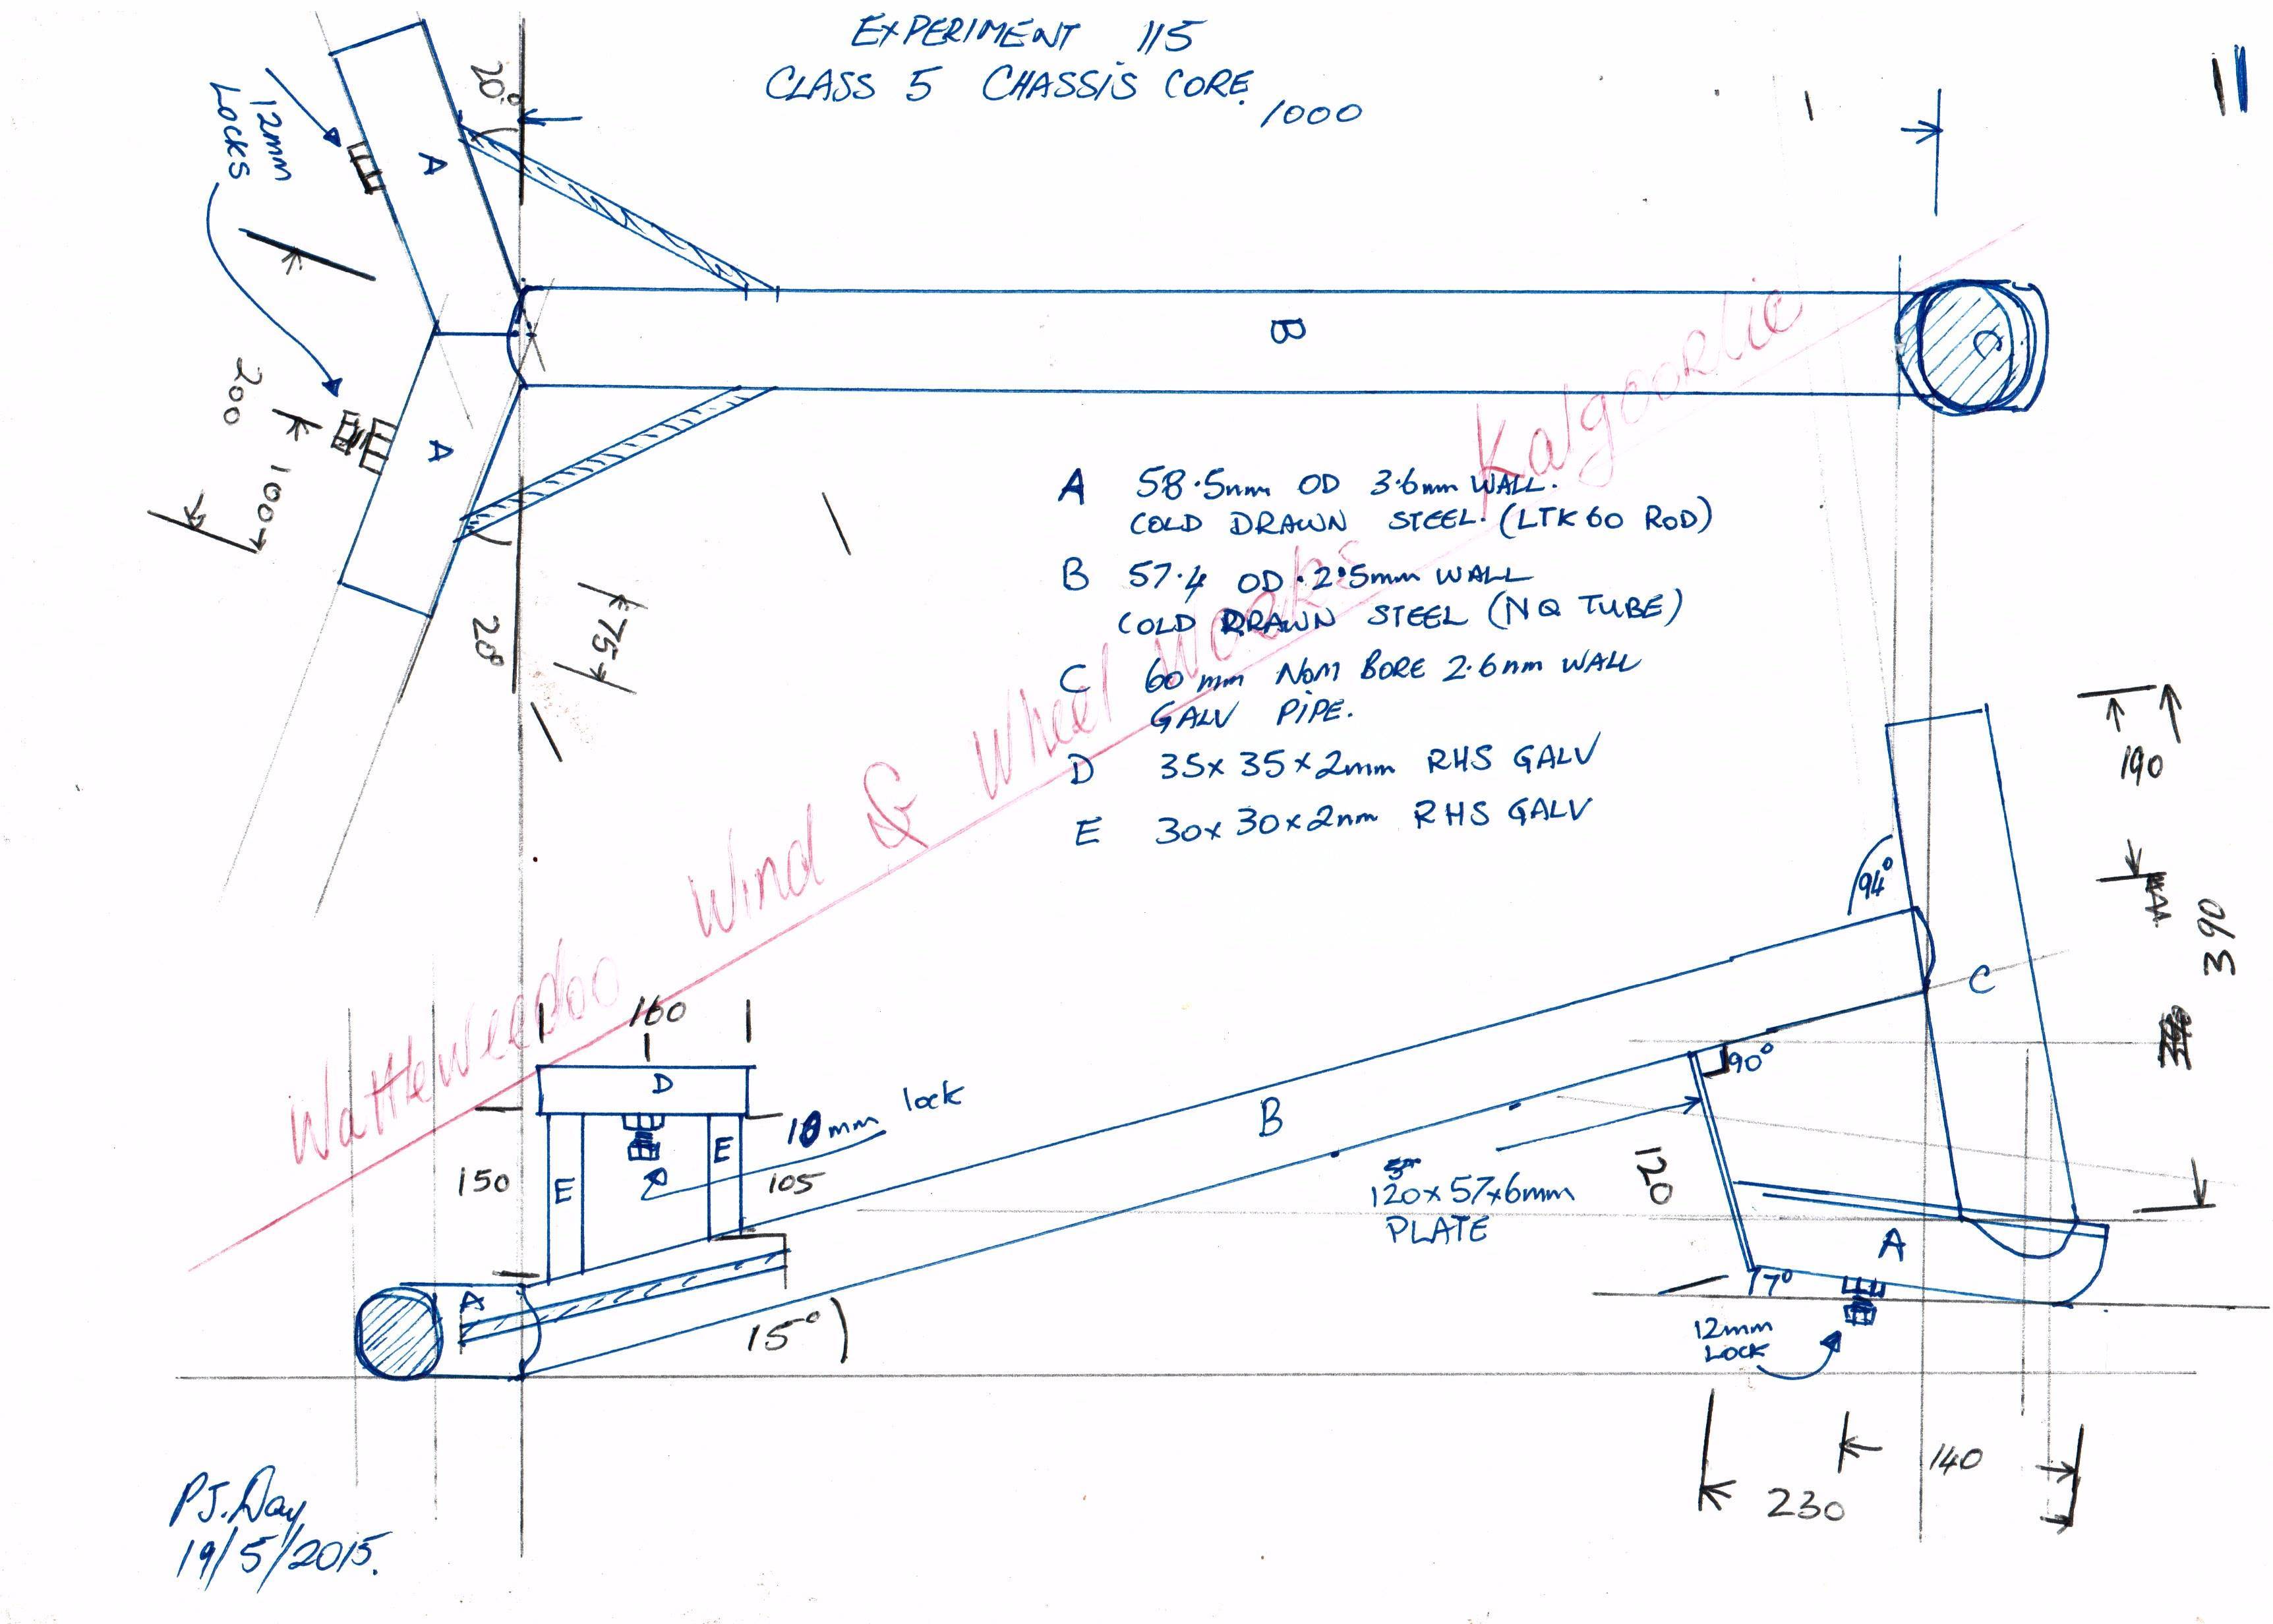 EXPERIMENT 115
CLASS 5 CHASSIS CORE
1000
11
20°
12mm
LOCKS
A
A
B
C
200
100
20°
75
A 58.5mm OD 3.6mm WALL.
COLD DRAWN STEEL. (LTK60 ROD)
B 57.4 OD 2.5mm WALL
COLD DRAWN STEEL (NQ TUBE)
C 60mm NOM BORE 2.6mm WALL
GALV PIPE.
D 35x35x2mm RHS GALV
E 30x30x2mm RHS GALV
Wattleweedoo Wind & Wheel Works Kalgoorlie
190
94°
390
C
160
D
10mm lock
E
E
150
105
B
90°
120
120x57x6mm
PLATE
A
A
15°
77°
12mm
LOCK
140
230
P.J. Day
19/5/2015.